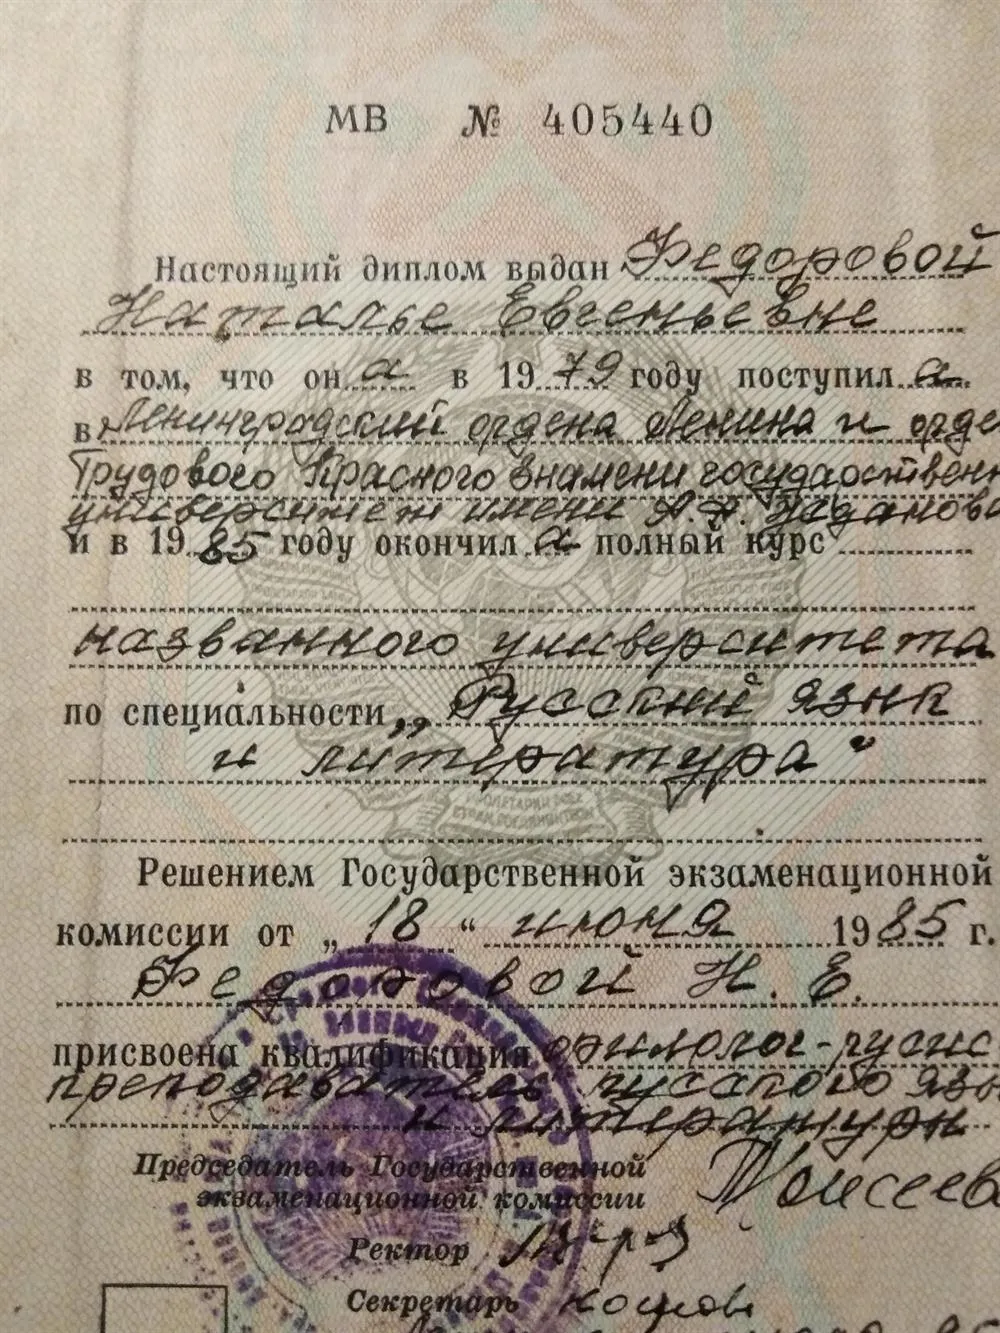 МВ № 405440
Настоящий диплом выдан Федоровой
Наталье Евгеньевне
в том, что он а в 1979 году поступил а
в Ленинградский ордена Ленина и орде
Трудового Красного Знамени государственн
университет имени А.А. Жданова
и в 1985 году окончил а полный курс
названного университета
по специальности „Русский язык
и литература“
Решением Государственной экзаменационной
комиссии от „18“ июня 1985 г.
Федоровой Н. Е.
присвоена квалификация филолог-русис
преподаватель русского язы
и литературы
Председатель Государственной
экзаменационной комиссии Моисеев
Ректор
Секретарь